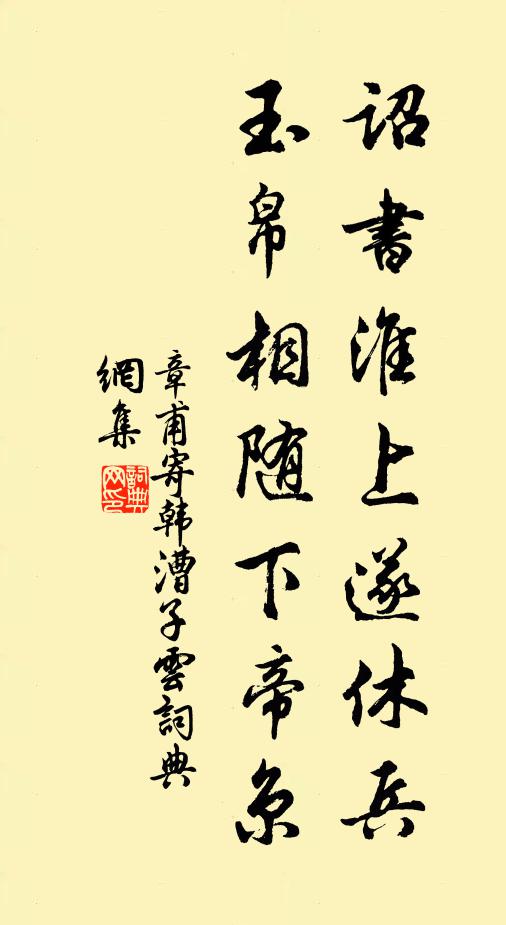 詔書淮上遂休兵
玉帛相随下帝京
章甫寄韩漕子雲詞典
網集
詞典
网印